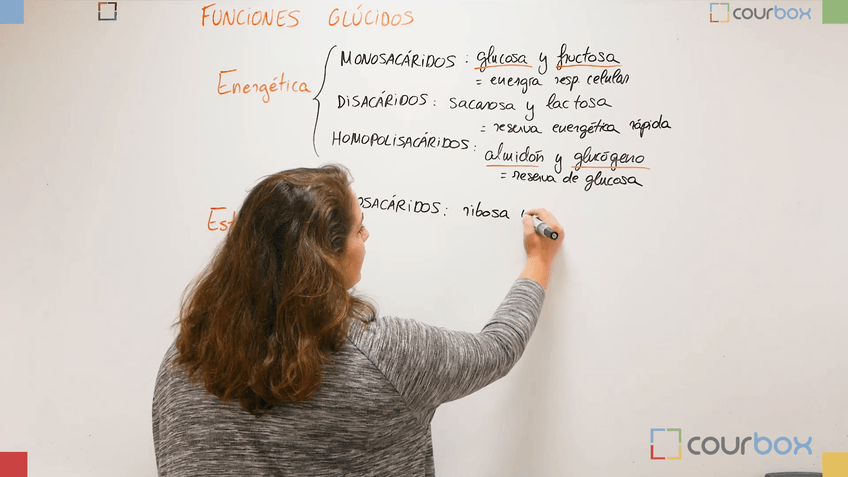 FUNCIONES GLÚCIDOS
courbox
Energética
MONOSACÁRIDOS: glucosa y fructosa
= energía resp. celular
DISACÁRIDOS: sacarosa y lactosa
= reserva energética rápida
HOMOPOLISACÁRIDOS:
almidón y glucógeno
= reserva de glucosa
Est
OSACÁRIDOS: ribosa
courbox